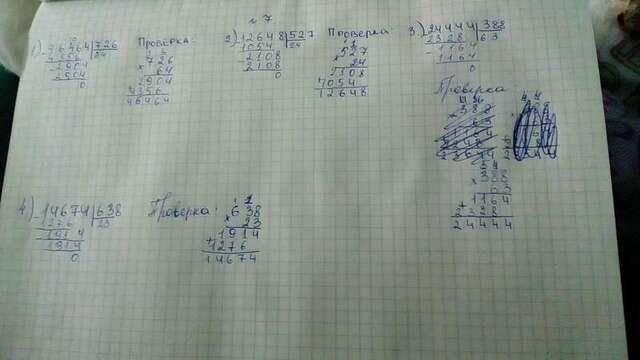 № 7
1) 46464 | 726
4356 | 64
2904
2904
0
Проверка:
726
× 64
2904
4356
46464
2) 12648 | 527
1054 | 24
2108
2108
0
Проверка:
527
× 24
2108
1054
12648
3) 24444 | 388
2328 | 63
1164
1164
0
Проверка
388
× 63
+ 1164
2328
24444
4) 14674 | 638
1276 | 23
1914
1914
0
Проверка:
638
× 23
+ 1914
1276
14674